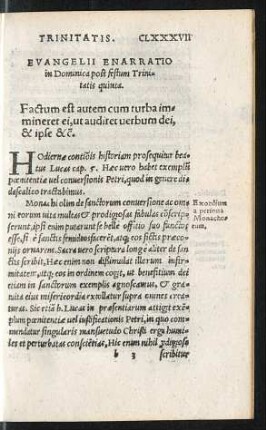 TRINITATIS. CLXXXVII
EVANGELII ENARRATIO
in Dominica post festum Trini-
tatis quinta.
Factum est autem cum turba im-
mineret ei, ut audiret uerbum dei,
& ipse &c̃.
HOdiernæ concionis historiam prosequitur bea-
tus Lucas cap. 5. Hæc uero habet exemplũ
pœnitentiæ uel conuersionis Petri, quod in genere di-
dascalico tractabimus.
Monachi olim de sanctorum conuersione ac omni
eorum uita multas & prodigiosas fabulas cõscrip-
serunt, ipsi enim putarunt se belle officio suo functos
esse, si è sanctis semideos fecerẽt, atq; eos fictis præco-
nijs ornarent. Sacra uero scriptura longe aliter de san-
ctis scribit, Hæc enim non dissimulat illorum infir-
mitatem, atq; eos in ordinem cogit, ut beneficium dei
etiam in sanctorum exemplis agnoscamus, & gra-
uita eius misericordia extollatur supra omnes crea-
turas. Sic etiã b. Lucas in præsentiarum attigit exem-
plum pœnitentiæ uel iustificationis Petri, in quo com-
mendatur singularis mansuetudo Christi erga humi-
les et perturbatas conscientias, Hic enim nihil
Exordium
a persona
Monacho-
rum.
b 3 scribitur